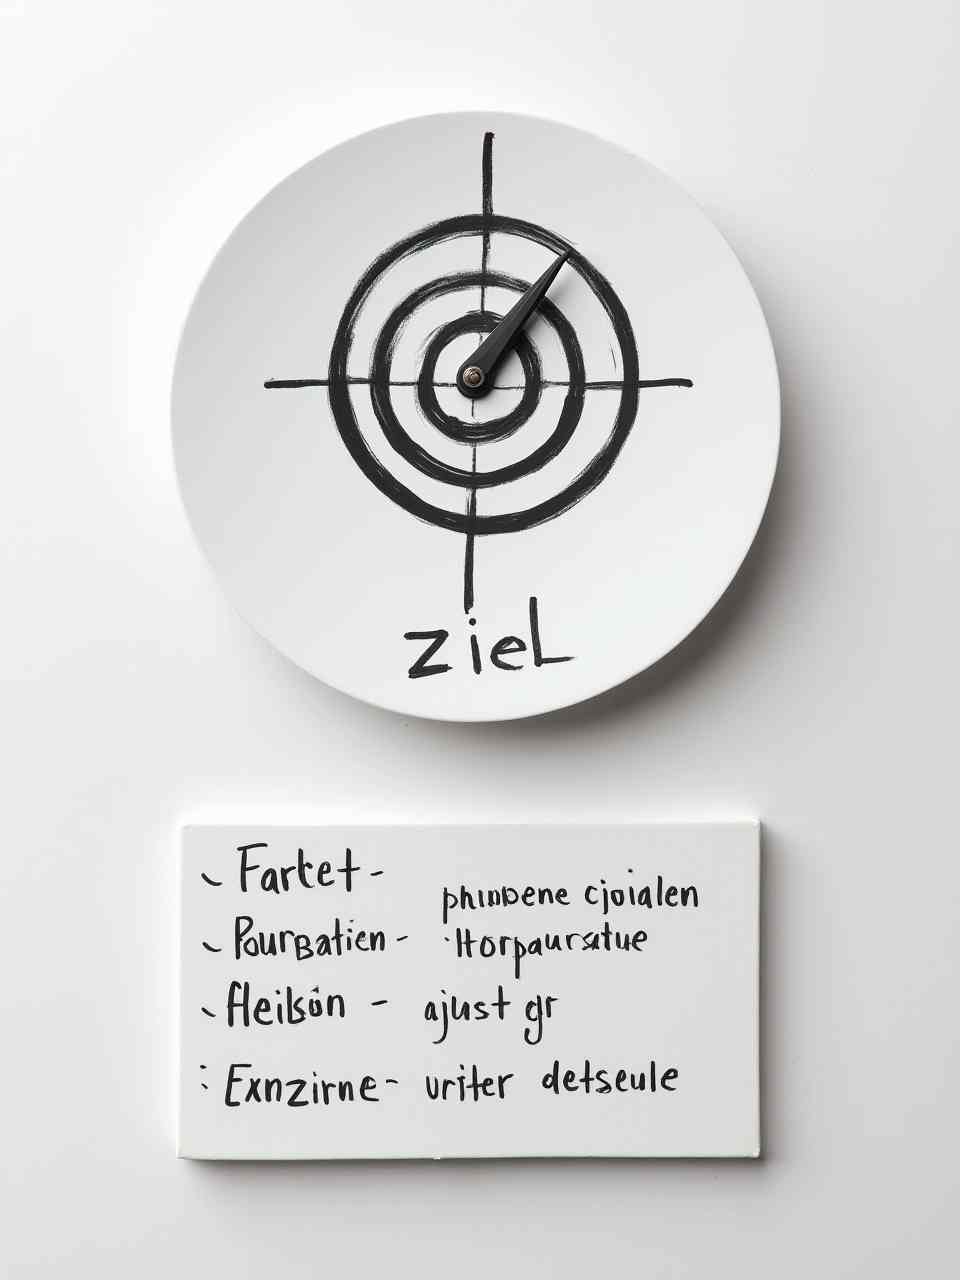 ziel
Fartet-
phınbene cjoialen
Pourbatien - Horpaursatue
Heilsön - ajust gr
Exnzirne- uriter detseule